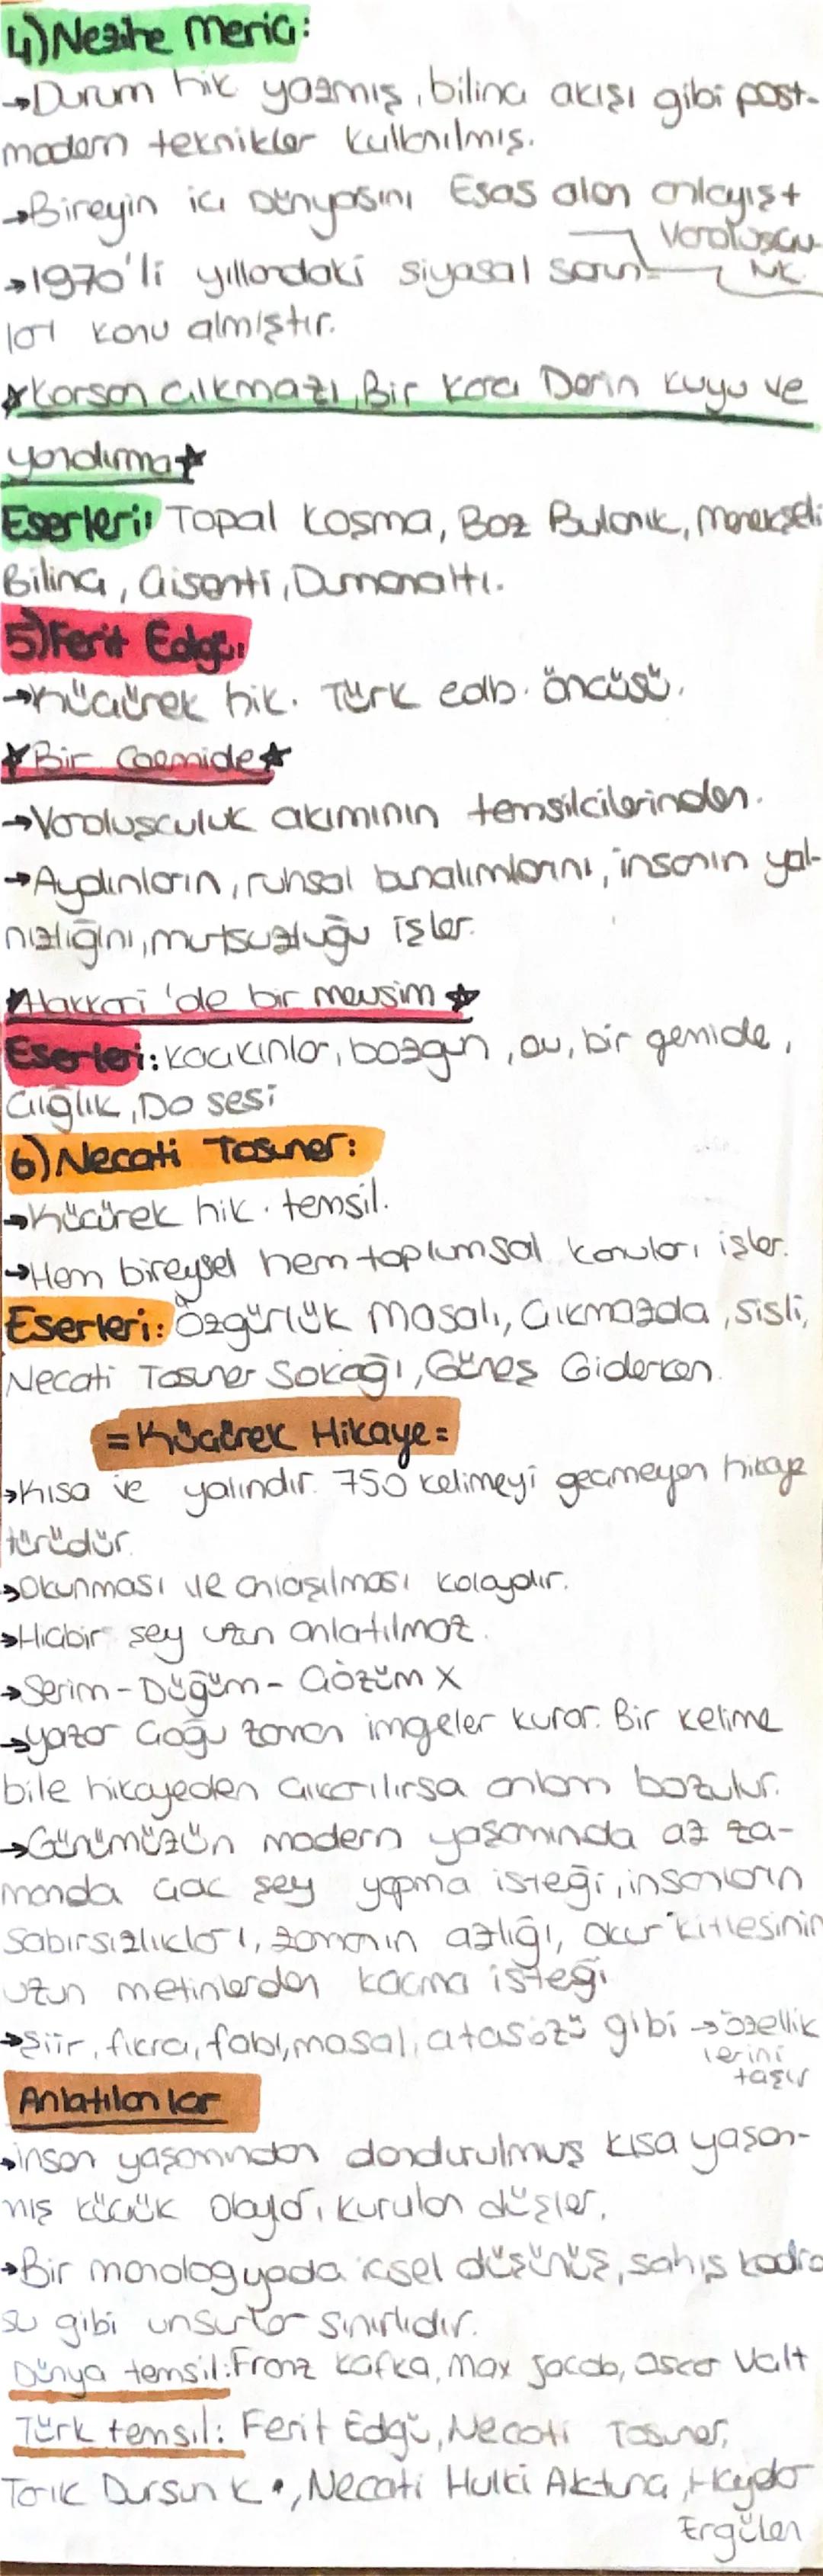 4) Nezihe Meriç:
→Durum hik yazmış, bilinç akışı gibi post-
modern teknikler kullanılmış.
→Bireyin iç Dünyasını Esas alan anlayış+
Varoluşçu
→1970'li yıllardaki siyasal sorun-
lar konu almıştır.
★Korsan Çıkmazı, Bir Kara Derin Kuyu ve
yandırma★
Eserleri: Topal Koşma, Boz Bulanık, Menekşeli
Bilinç, Çisenti, Dumanaltı.
5) Ferit Edgü:
→Küçürek hik. Türk edb. öncüsü.
★Bir Gemide★
→Varoluşçuluk akımının temsilcilerinden.
→Aydınların, ruhsal bunalımlarını, insanın yal-
nızlığını, mutsuzluğu işler.
★Hakkari'de bir mevsim★
Eserleri: Kaçkınlar, bozgun, av, bir gemide,
Çığlık, Do sesi
6) Necati Tosuner:
→Küçürek hik. temsil.
→Hem bireysel hem toplumsal konuları işler.
Eserleri: Özgürlük Masalı, Çıkmazda, sisli,
Necati Tosuner Sokağı, Güneş Giderken.
=Küçürek Hikaye=
→Kısa ve yalındır. 750 kelimeyi geçmeyen hikaye
türüdür.
→Okunması ve anlaşılması kolaydır.
→Hiçbir şey uzun anlatılmaz.
→Serim-Düğüm-Çözüm X
→Yazar çoğu zaman imgeler kurar. Bir kelime
bile hikayeden çıkarılırsa anlam bozulur.
→Günümüzün modern yaşamında az za-
manda çok şey yapma isteği, insanların
sabırsızlıkları, zamanın azlığı, okur kitlesinin
uzun metinlerden kaçma isteği
→Şiir, fıkra, fabl, masal, atasözü gibi →özellik
lerini
taşır
Anlatılanlar
→insan yaşamından dondurulmuş kısa yaşan-
mış küçük olaylar, kurulan düşler.
→Bir monolog yada içsel düşünüş, şahıs kadro
su gibi unsurlar sınırlıdır.
Dünya temsil: Franz Kafka, Max Jacob, Oscar Valt
Türk temsil: Ferit Edgü, Necati Tosuner,
Tarık Dursun K., Necati Hulki Aktunç, Haydar
Ergülen